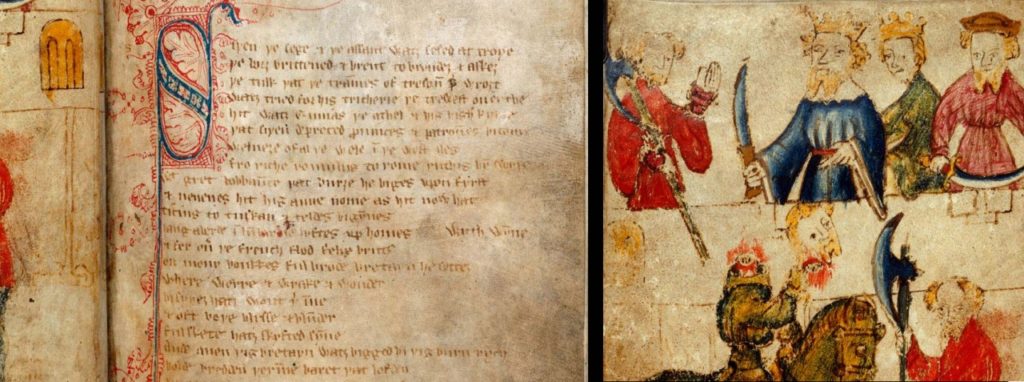 Siþen þe sege & þe assaut watz sesed at troye
þe borȝ brittened & brent to brondez & askez
þe tulk þat þe trammes of tresoun þ wroȝt
watz tried for his tricherie þe trewest on erthe
hit watz ennias þe athel & his highe kynde
þat siþen depreced prouinces & patrounes bicome
welneȝe of al þe wele in þe west iles
fro riche romulus to rome ricchis hym swyþe
gret bobbaunce þat burȝe he biges vpon fyrst
& neuenes hit his aune nome as hit now hat
ticius to tuskan & teldes bigynnes
langaberde in lumbardie lyftes vp homes wyth wynne
& fer ouer þe french flod felix brutus
on mony bonkkes ful brode bretayn he settez
where werre & wrake & wonder
bi syþez hatz wont þerinne
& oft boþe blysse & blunder
ful skete hatz skyfted synne
ande quen þis bretayn watz bigged bi þis burn rych
bolde bredden þerinne baret þat lofden